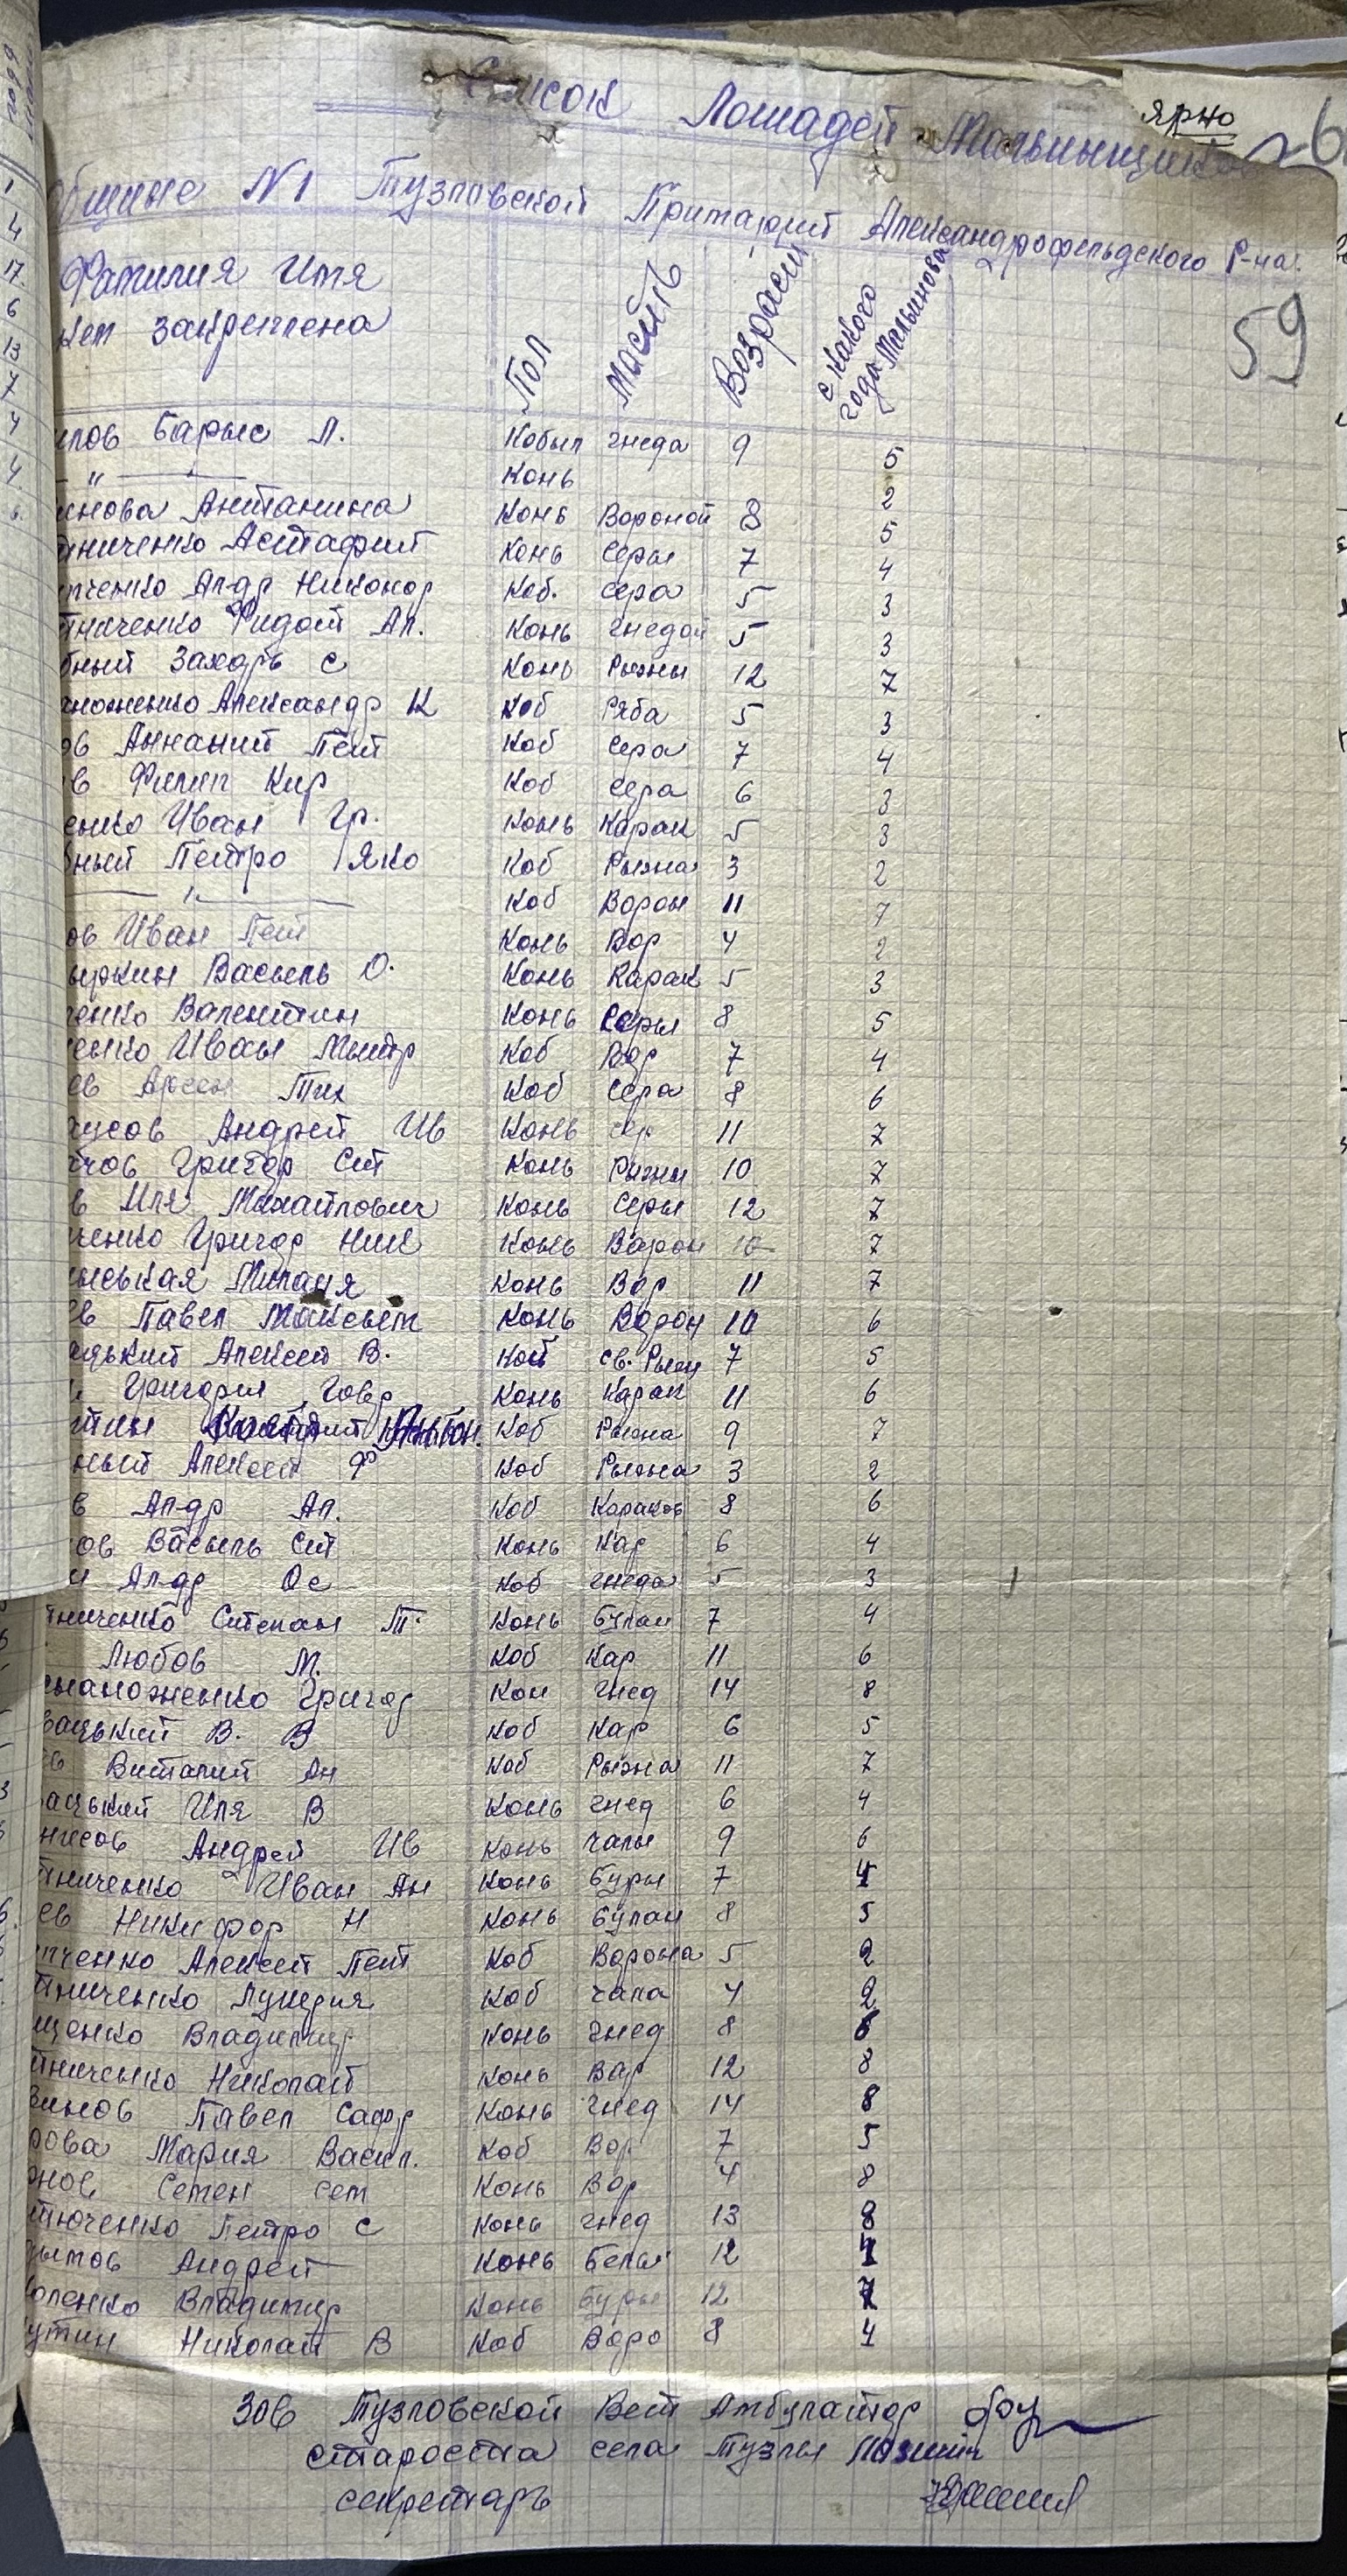 ярно
Список Лошадей
общине №1 Тузловской Примарий Александрофельдского Р-на.
59
Фамилия Имя
кем закреплена
Пол Масть Возраст с какого года
илов Барыс Л. Кобыл гнеда 9 5
" Конь 2
инова Антанина Конь Вороной 8 5
тниченко Астафий Конь Серы 7 4
пченко Ал-др Никонор Коб. сера 5 3
тниченко Фидот Ал. Конь гнедой 5 3
бный Захарь С Конь Рыжы 12 7
ноженко Александр К Коб Ряба 5 3
ов Аннаний Пет Коб Сера 7 4
в Филип Кир Коб Сера 6 3
енко Иван Гр. Конь Карак 5 3
бный Петро Яко Коб Рыжа 3 2
" Коб Ворон 11 7
ов Иван Пет Конь Вор 4 2
ыркин Васыль О. Конь Карак 5 3
енко Валентин Конь Серы 8 5
енко Иван Мытр Коб Вор 7 4
ев Арсен Тих Коб Сера 8 6
аусов Андрей Ив Конь сер 11 7
чов Григор Сит Конь Рыжы 10 7
в Иля Михайлович Конь Серы 12 7
ченко Григор Ник Конь Варон 10 7
ыськая Миланя Конь Вор 11 7
ев Павел Максым Конь Ворон 10 6
ацький Алексей В. Коб св. Рыж 7 5
Григорий Конь Карак 11 6
тин Антон. Коб Рыжа 9 7
ный Алексей Ф Коб Рыжа 3 2
в Ал-др Ал. Коб Караков 8 6
ов Васыль Сит Конь Кар 6 4
и Ал-др Ос Коб гнеда 5 3
тниченко Ситепан Т. Конь Булан 7 4
Любов М. Коб Кар 11 6
маноженко Григор Кон гнед 14 8
вацький В. В Коб Кар 6 5
ев Виталий Ан Коб Рыжа 11 7
ацький Иля В Конь гнед 6 4
нисов Андрей Ив Конь чалы 9 6
тниченко Иван Ан Конь Буры 7 4
ев Никифор Н Конь Булан 8 5
пченко Алексей Пет Коб Ворона 5 2
тниченко Лукерия Коб чала 4 2
щенко Владимир Конь гнед 8 6
тниченко Николай Конь Вар 12 8
винов Павел Сафр Конь гнед 14 8
рова Мария Васил. Коб Вор 7 5
рнов Семен сем Конь Вор 4 8
тюченко Петро С Конь гнед 13 8
дымов Андрей Конь Белы 12
оленко Владимир Конь Буры 12 7
утин Николай В Коб Воро 8 4
Зов Тузловской Вет Амбулатор
староста села Тузлы
секретарь